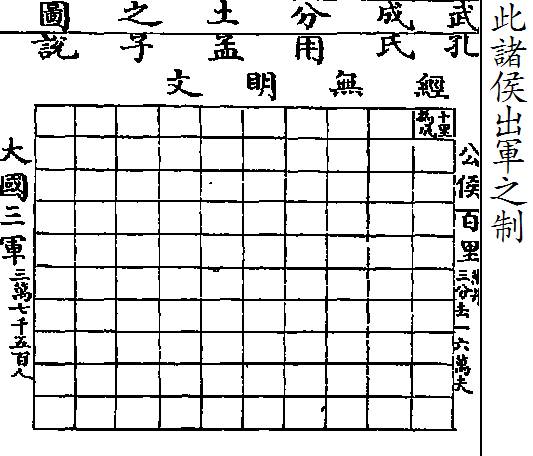 此諸侯出軍之制
武成分土之圖
孔氏用孟子說
經無明文
十里為成
公侯百里
三分去一六萬夫
大國三軍三萬七千五百人